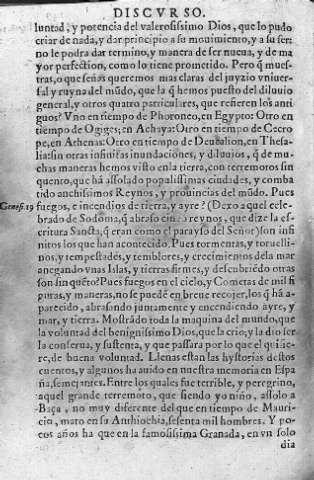 DISCVRSO.
luntad, y potencia del valerosissimo Dios, que lo pudo
criar de nada, y dar principio a su mouimiento, y a su ser:
no le podra dar termino, y manera de ser nueua, y de ma
yor perfection, como lo tiene prometido. Pero q̃ mues-
tras, o que señas queremos mas claras del juyzio vniuer-
sal y ruyna del mũdo, que la q̃ hemos puesto del diluuio
general, y otros quatro particulares, que refieren los anti
guos? Vno en tiempo de Phoroneo, en Egypto: Otro en
tiempo de Ogiges; en Achaya: Otro en tiempo de Cecro
pe, en Athenas: Otro en tiempo de Deucalion, en Thesa-
lia: sin otras infinitas inundaciones, y diluuios, q̃ de mu-
chas maneras hemos visto en la tierra, con terremotos sin
quento, que há assolado populissimas ciudades, y comba
tido anchissimos Reynos, y prouincias del mũdo. Pues
Genes. 19 fuegos, e incendios de tierra, y ayre? (Dexo aquel cele-
brado de Sodoma, q̃ abraso cinco reynos, que dize la es-
critura Sancta, q̃ eran como el parayso del Señor) son infi
nitos los que han acontecido. Pues tormentas, y toruelli-
nos, y tempestades, y temblores, y crecimientos de la mar
anegando vnas Islas, y tierras firmes, y descubriẽdo otras
son sin quẽto? Pues fuegos en el cielo, y Cometas de mil fi
guras, y maneras, no se puedẽ en breue recojer, los q̃ há a-
parecido, abrasando juntamente y encendiendo ayre, y
mar, y tierra. Mostrãdo toda la maquina del mundo, que
la voluntad del benignissimo Dios, que la crio, y la dio ser
la conserua, y sustenta, y que passara por lo que el qui siẽ-
re, de buena voluntad. Llenas estan las hystorias destos
cuentos, y algunos ha auido en nuestra memoria en Espa
ña, semejantes. Entre los quales fue terrible, y peregrino,
aquel grande terremoto, que siendo yo niño, assolo a
Baça, no muy diferente del que en tiempo de Mauri-
cio, mato en su Anthiochia, sesenta mil hombres. Y po-
cos años ha que en la famosissima Granada, en vn solo
dia